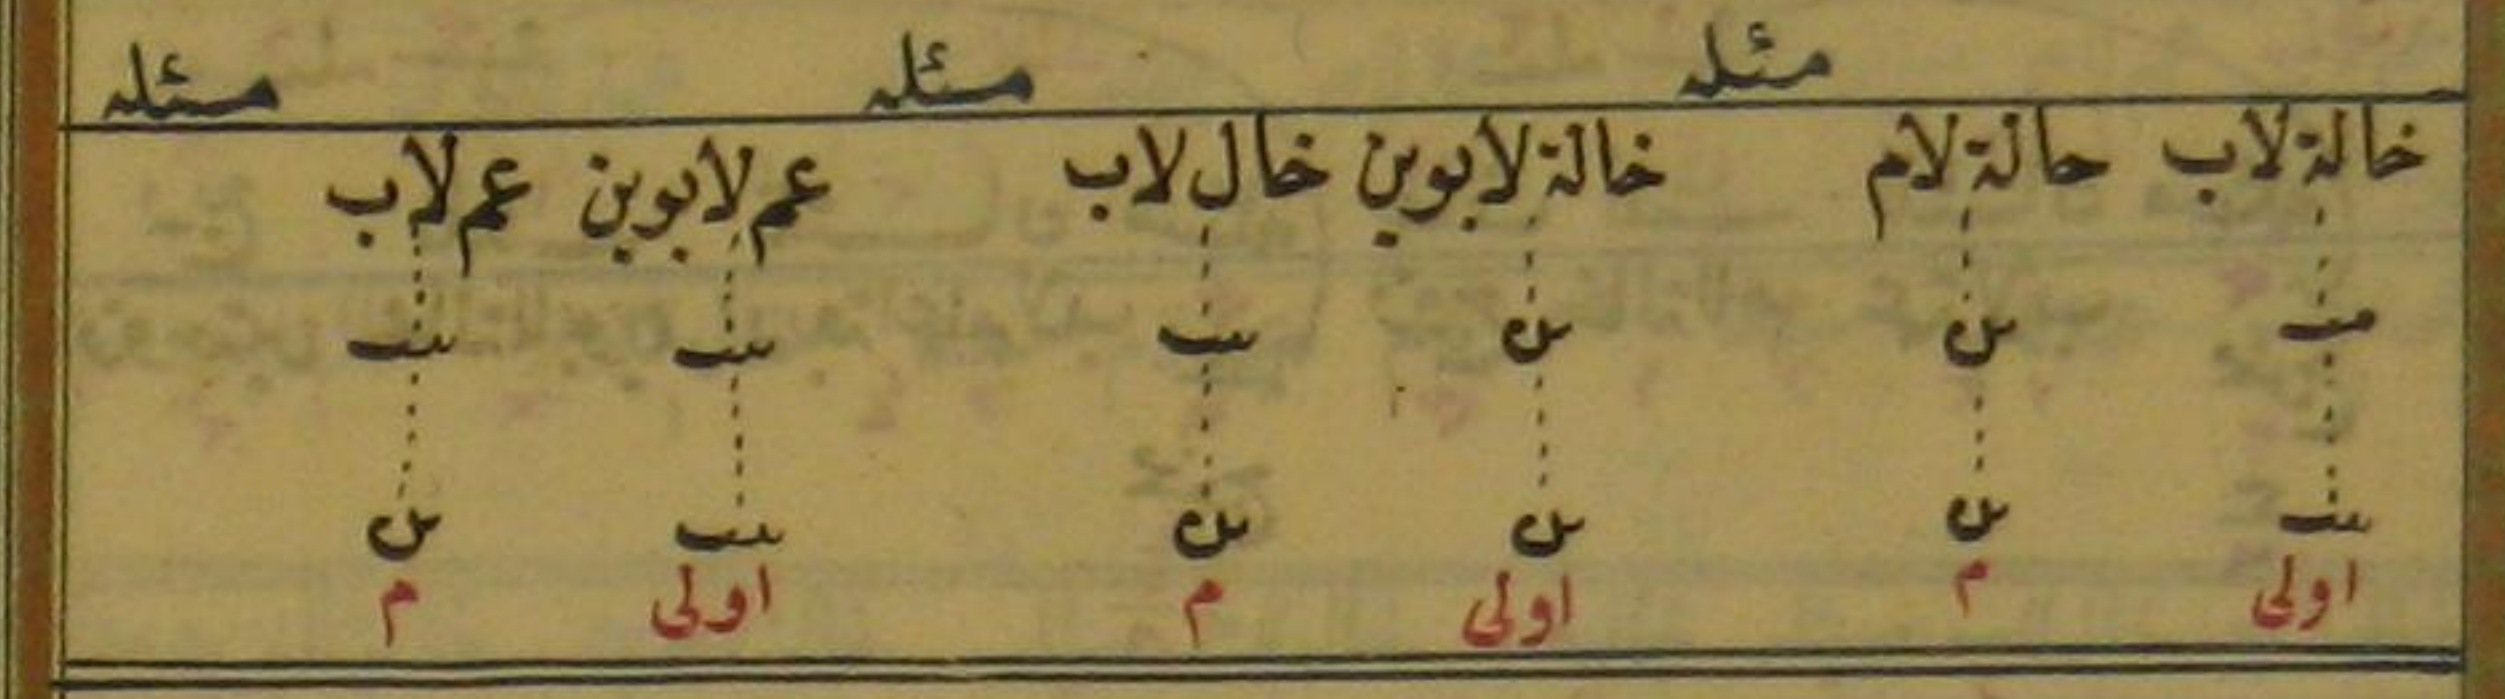 مسئله مسئله مسئله
خالة لاب حالة لام خالة لابوين خال لاب عم لابوين عم لاب
بنت ابن ابن بنت بنت بنت
بنت ابن ابن ابن بنت ابن
اولى م اولى م اولى م